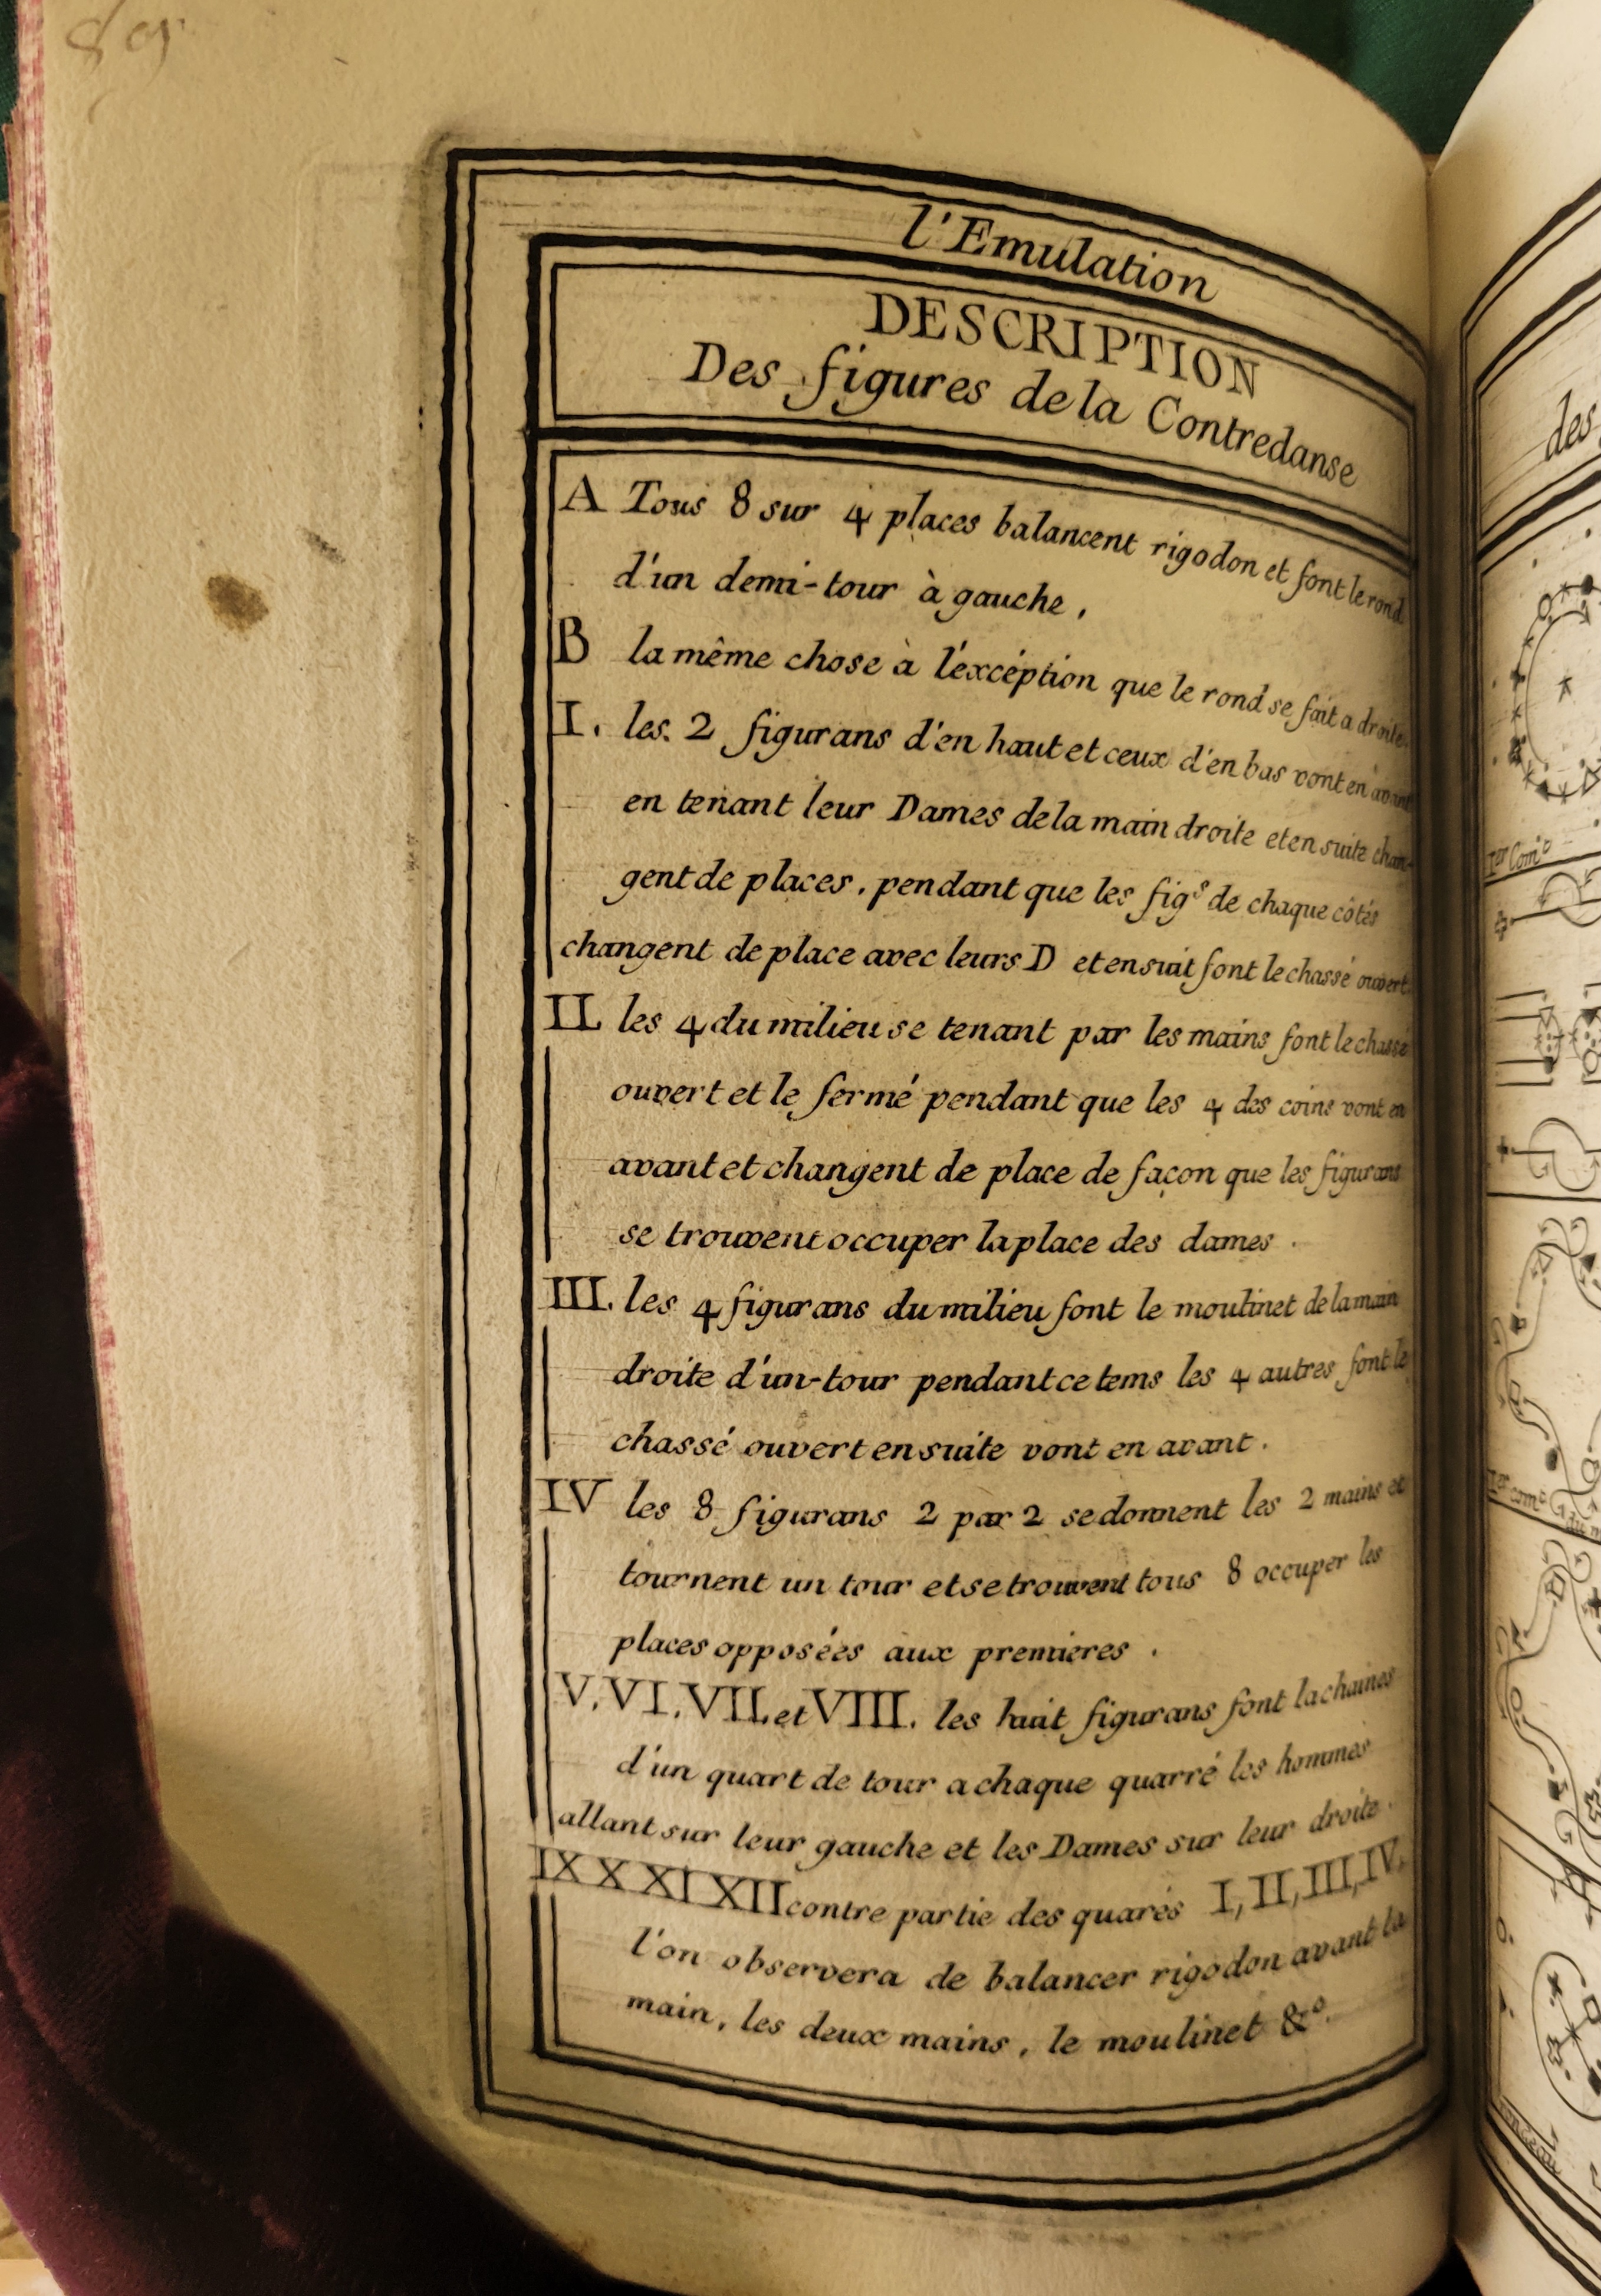 89
l'Emulation
DESCRIPTION
Des figures de la Contredanse
A Tous 8 sur 4 places balancent rigodon et font le rond
d'un demi-tour à gauche,
B la même chose à l'éxcéption que le rond se fait a droite
I. les. 2 figurans d'en haut et ceux d'en bas vont en avant
en tenant leur Dames de la main droite et en suite chan-
gent de places, pendant que les figs de chaque côtés
changent de place avec leurs D et en suit font le chassé ouvert.
II. les 4 du milieu se tenant par les mains font le chassé
ouvert et le fermé pendant que les 4 des coins vont en
avant et changent de place de façon que les figurans
se trouvent occuper la place des dames.
III. les 4 figurans du milieu font le moulinet de la main
droite d'un-tour pendant ce tems les 4 autres font le
chassé ouvert en suite vont en avant.
IV les 8 figurans 2 par 2 se donnent les 2 mains et
tournent un tour et se trouvent tous 8 occuper les
places opposées aux premieres.
V. VI. VII. et VIII. les huit figurans font la chaines
d'un quart de tour a chaque quarré les hommes
allant sur leur gauche et les Dames sur leur droite.
IX X XI XII contre partie des quarés I, II, III, IV,
l'on observera de balancer rigodon avant la
main, les deux mains, le moulinet &c.
des
1er Com.
1er com.